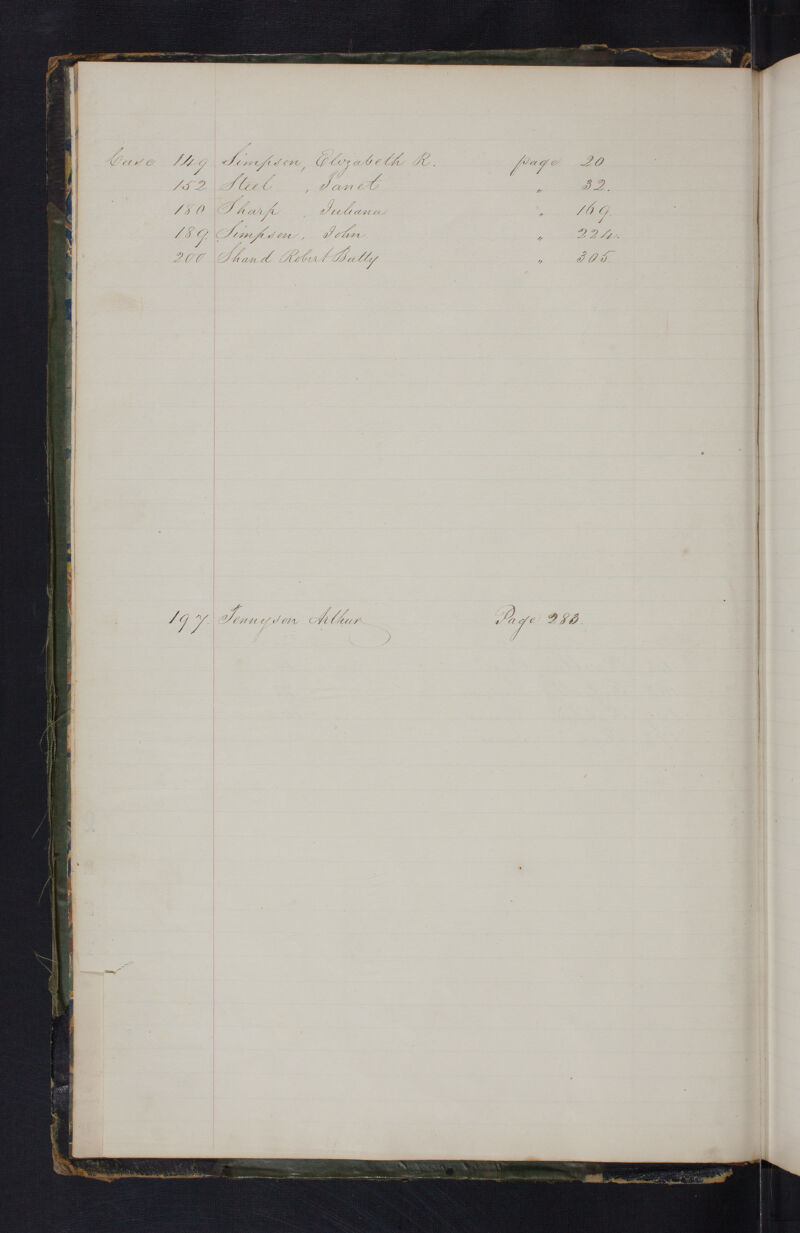 Case 149 Simpson, Elizabeth R. page 20
152 Steel , Janet " 32.
180 Sharp , Juliana " 169.
189. Simpson, John " 224.
200 Shand Robert Batty " 305
197 Tennyson Arthur Page 283.